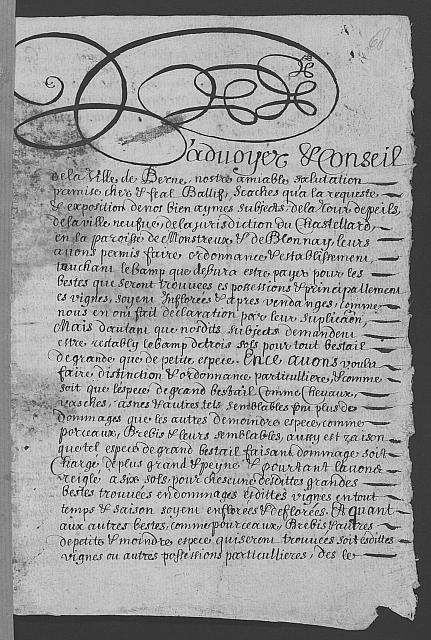 68
L'advoyer & Conseil
de la Ville de Berne, nostre amiable salutation
premise cher & feal Ballif, Scaches qua la requeste
& exposition de nos bien aymes subjects de la Tour de peils,
de la ville neufve, de la jurisdiction du Chastellard,
en la paroisse de Monstreux & de Blonnay, leurs
avons permis faire ordonnance & establissement,
touchant le bamp que debvra estre payer pour les
bestes que seront trouvees es possessions & principallement
es vignes, soyent inflories & apres vendanges, comme
nous en ont fait declaration par leur suplication,
Mais dautant que nosdits subjects demandent
estre restably le bamp de trois sols pour tout bestail
de grande que de petite espece. En ce avons voulu
faire distinction & ordonnance particulliere, & comme
soit que lespece de grand bestail comme Chevaux,
vasches, asnes & autres tels semblables font plus de
dommages que les autres de moindre espece, comme
porceaux, Brebis & leurs semblables, aussy est raison
que tel espece de grand bestail faisant dommage soit
Charge de plus grand peyne & pourtant lavons
reigle a six sols, pour chescune desdittes grandes
bestes trouvees en dommages esdittes vignes en tout
temps & saison soyent enflorees & deflorees. Et quant
aux autres bestes, comme pourceaux, Brebis & autres
de petite & moindre espece qui seront trouvees soit esdittes
vignes ou autres possessions particullieres, des le